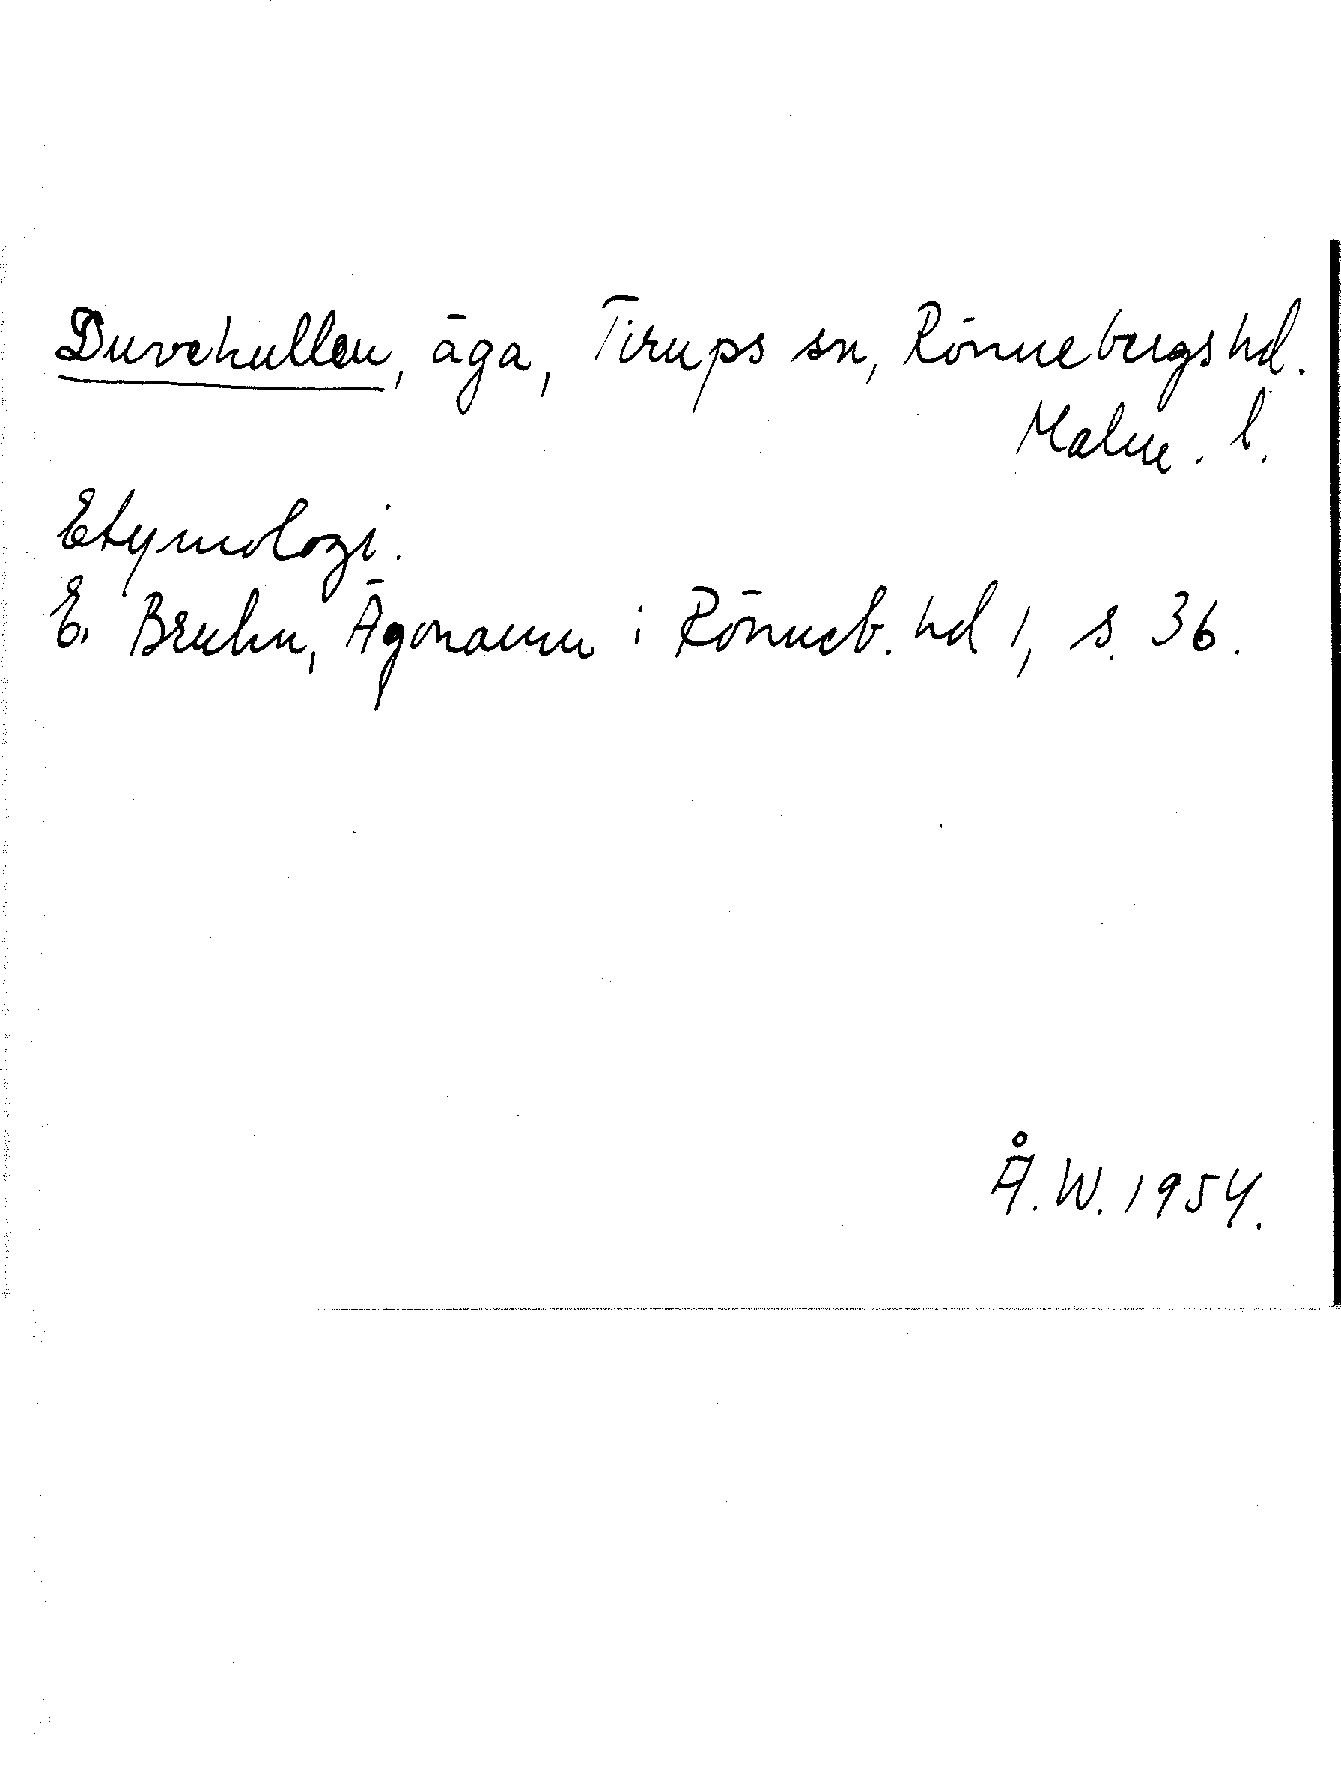 Duvehallen, äga, Tirups sn, Rönnebergs hd.
Malm. l.
Etymologi.
E. Bruhn, Ägonamn i Rönneb. hd 1, s. 36.
Å. W. 1954.